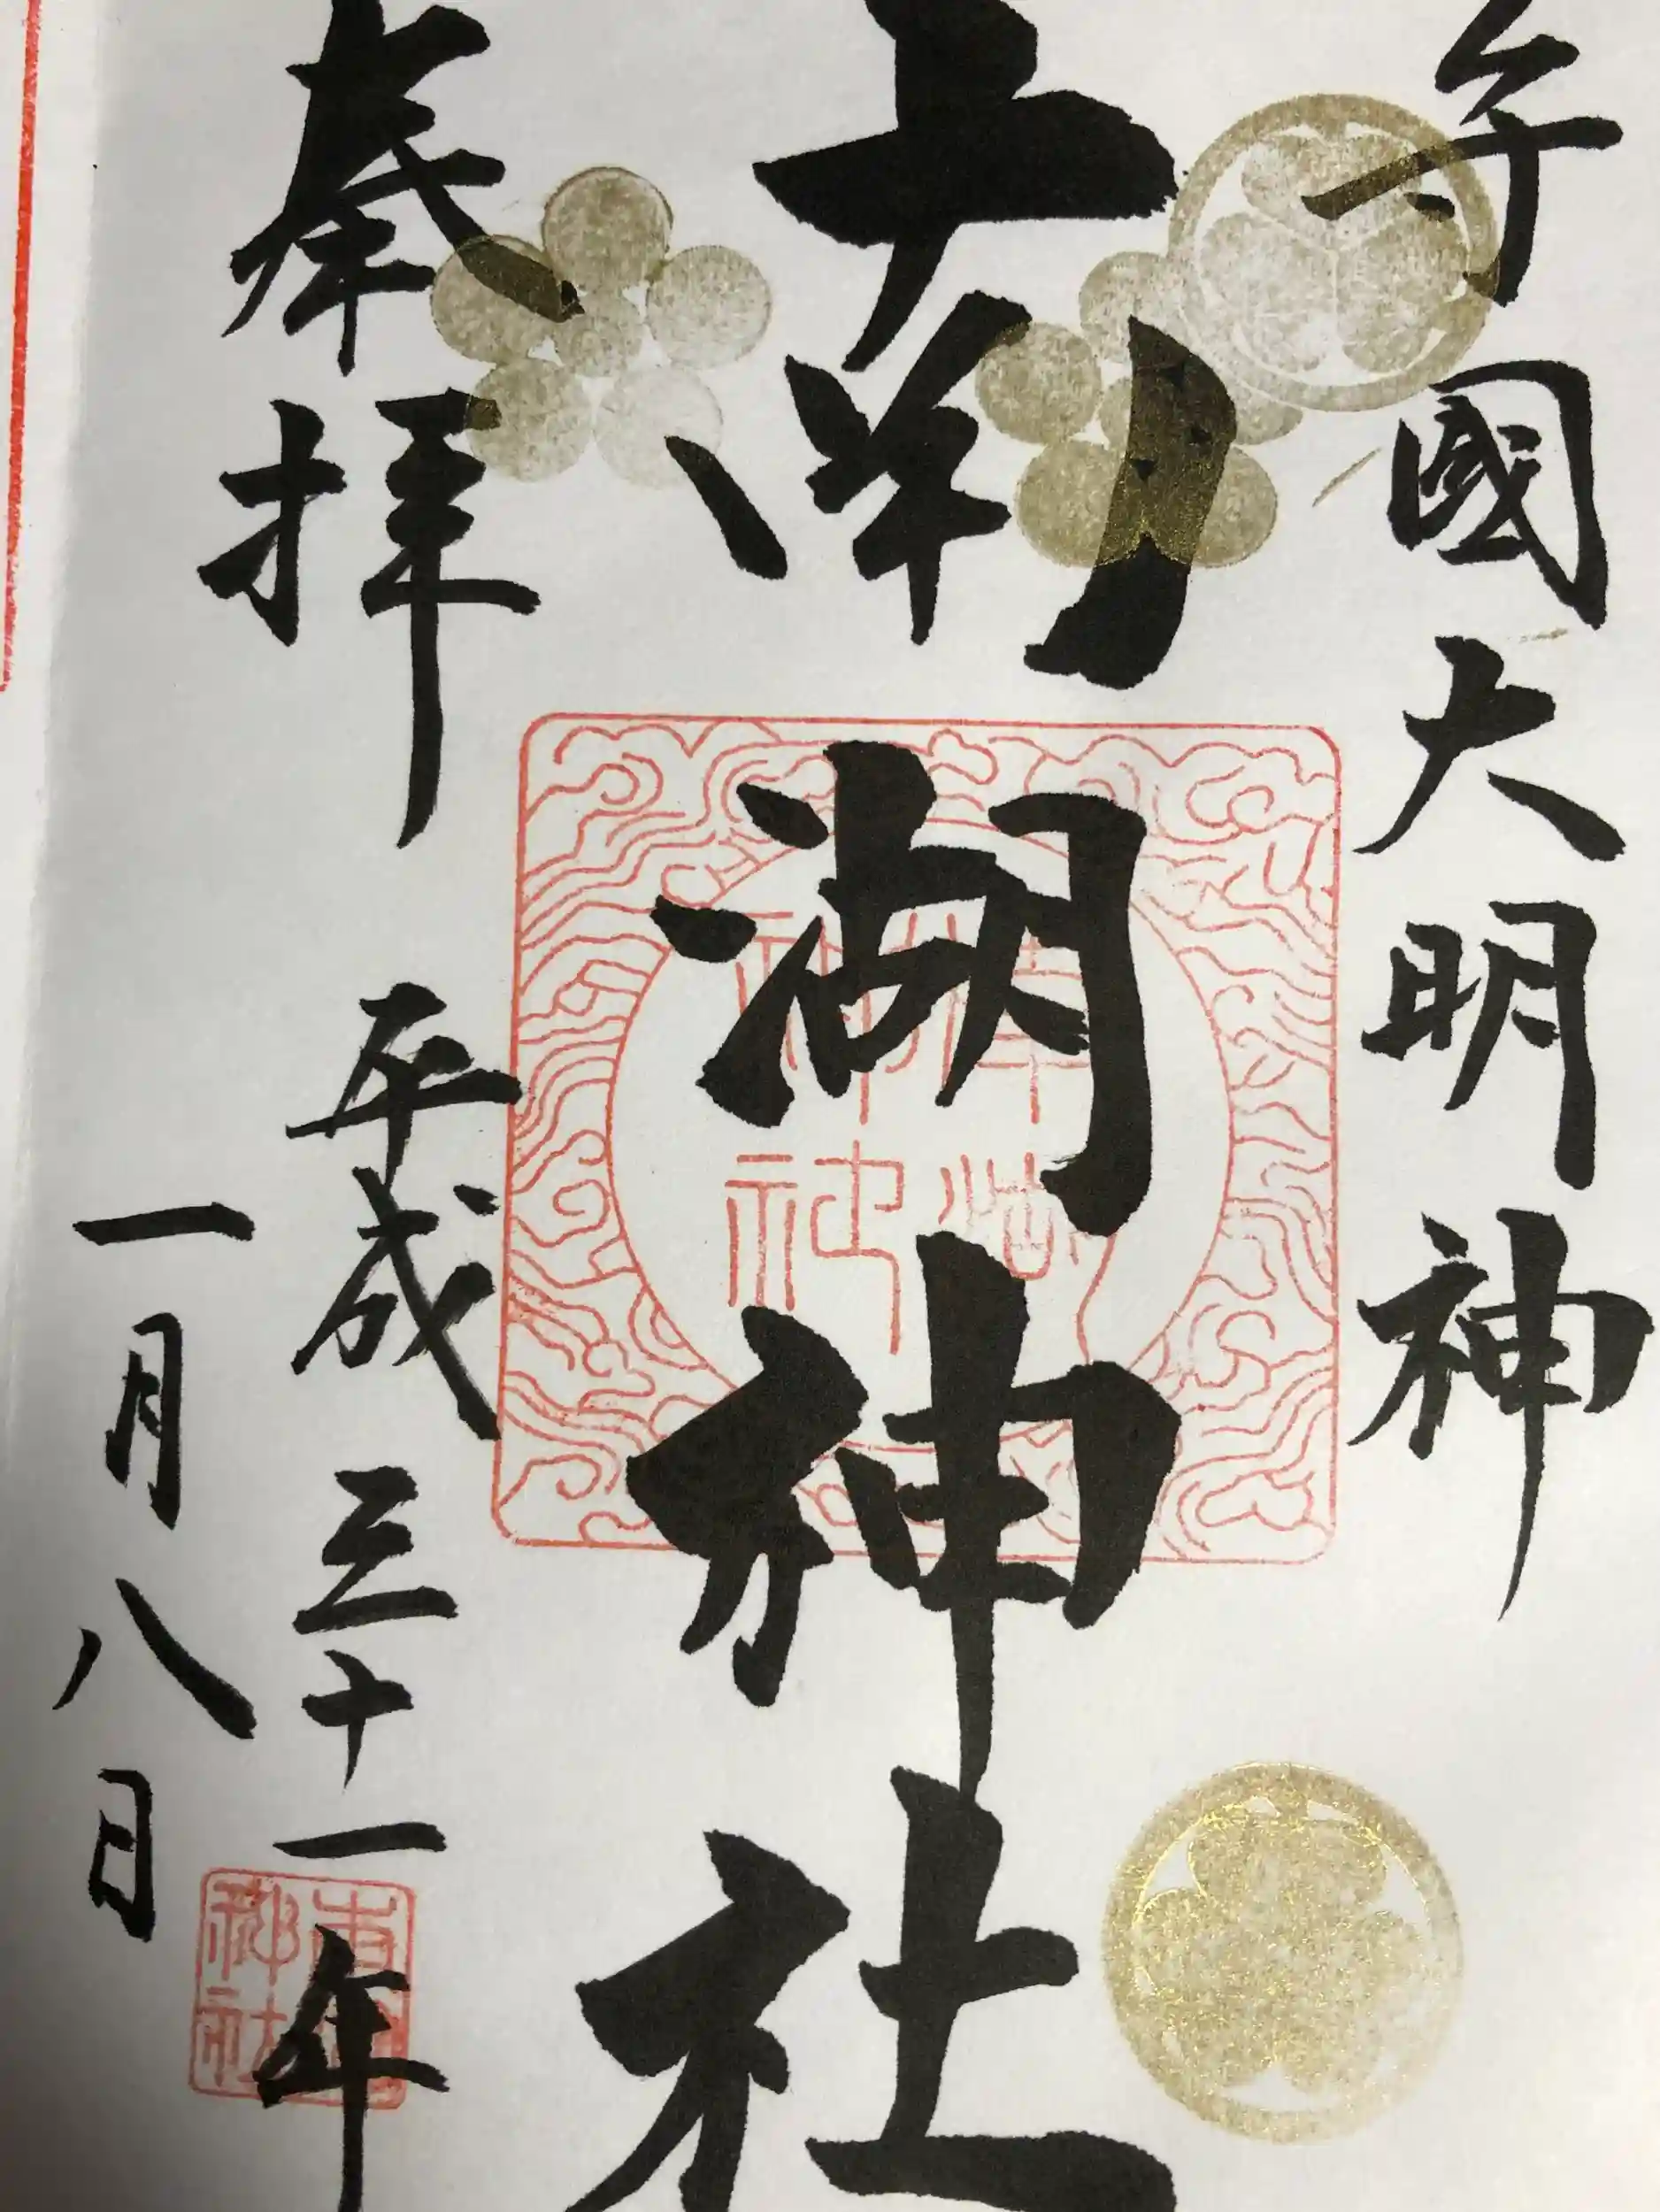 守國大明神
南湖神社
奉拝
平成三十一年
一月八日
南湖神社